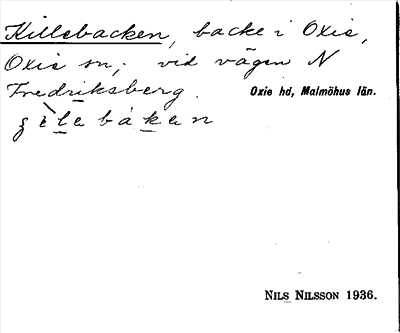 Killebacken, backe i Oxie,
Oxie sn; vid vägen N
Fredriksberg. Oxie hd, Malmöhus län.
NILS NILSSON 1936.